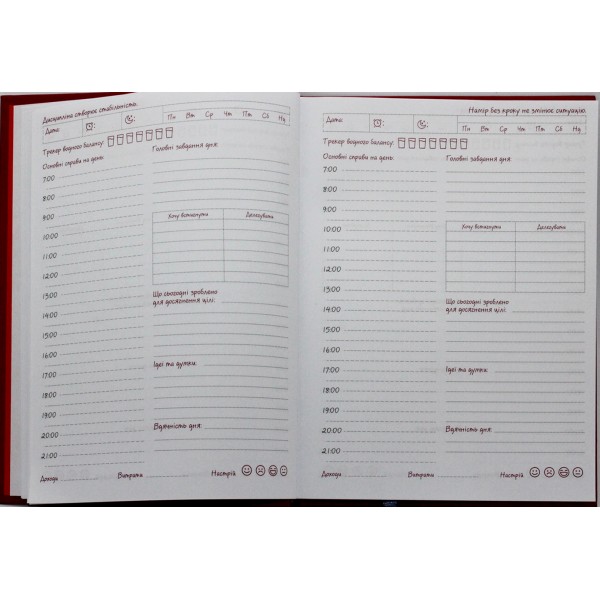 Дисципліна створює стабільність.
Дата: : :
Пн Вт Ср Чт Пт Сб Нд
Трекер водного балансу:
Основні справи на день:
7:00
8:00
9:00
10:00
11:00
12:00
13:00
14:00
15:00
16:00
17:00
18:00
19:00
20:00
21:00
Головні завдання дня:
Хочу встигнути Делегувати
Що сьогодні зроблено
для досягнення цілі:
Ідеї та думки:
Вдячність дня:
Доходи Витрати Настрій
Намір без кроку не змінює ситуацію.
Дата: : :
Пн Вт Ср Чт Пт Сб Нд
Трекер водного балансу:
Основні справи на день:
7:00
8:00
9:00
10:00
11:00
12:00
13:00
14:00
15:00
16:00
17:00
18:00
19:00
20:00
21:00
Головні завдання дня:
Хочу встигнути Делегувати
Що сьогодні зроблено
для досягнення цілі:
Ідеї та думки:
Вдячність дня:
Доходи Витрати Настрій